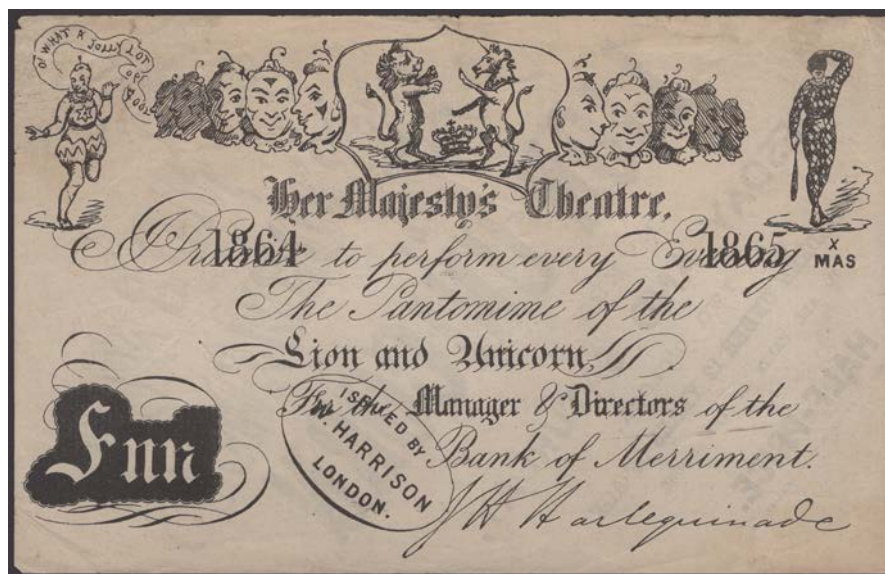 O! WHAT A JOLLY LOT
OF FOOD
Her Majesty's Theatre,
1864 1865
I Promise to perform every Evening
X
MAS
The Pantomime of the
Lion and Unicorn
For the Manager & Directors of the
Bank of Merriment.
Fun
ISSUED BY
W. HARRISON
LONDON.
J H Harlequinade